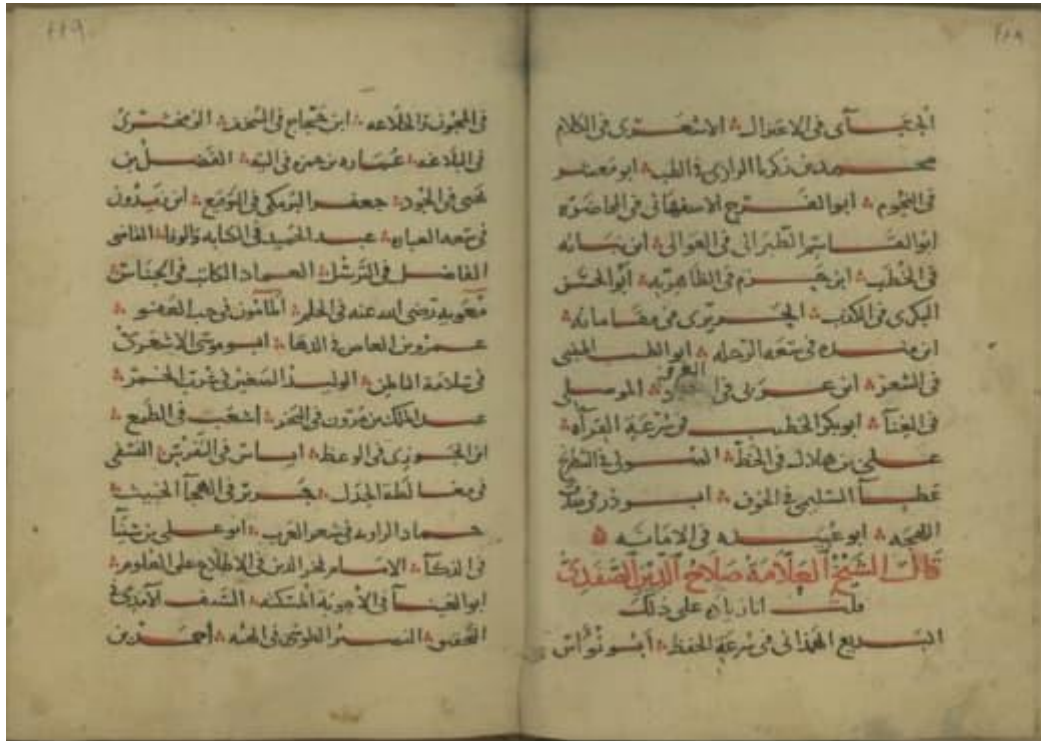 ٢٢٨
الجبآى فى الاعتزال ؞ الاشعرى فى الكلام
محمد بن زكريا الرازى فى الطب ؞ ابو معشر
فى النجوم ؞ ابو الفرج الاصفهانى فى المحاضره
ابو القاسم الطبرانى فى العوالى ؞ ابن نباته
فى الخطب ؞ ابن حزم فى الظاهريه ؞ ابو الحسن
البكرى فى الكذب ؞ الحريرى فى مقاماته ؞
ابن منده فى سعه الرحله ؞ ابو الطيب المتنبى
فى الشعر ؞ ابن عربى فى ؞ الموصلى
فى الغنآ ؞ ابو بكر الخطيب فى سرعة القرآه ؞
على بن هلال فى الخط ؞ الصولى فى الشطرنج
عطآ السليمى فى الخوف ؞ ابو ذر فى صدق
اللهجه ؞ ابو عبيده فى الامانه ؞
قال الشيخ العلامة صلاح الدين الصفدى
قلت انا زياده على ذلك
البديع الهمذانى فى سرعة الحفظ ؞ ابو نواس
٢٢٩
فى المجون والخلاعه ؞ ابن حجاج فى السخف ؞ الزمخشرى
فى البلاغه ؞ عماره بن حمزه فى التيه ؞ الفضل بن
يحيى فى الجود ؞ جعفر البرمكى فى التوقيع ؞ ابن زيدون
فى سعه العباره ؞ عبد الحميد فى الكتابه والوفا ؞ القاضى
الفاضل فى الترسل ؞ العماد الكاتب فى الجناس
معويه رضى الله عنه فى الحلم ؞ المامون فى حب العفو ؞
عمرو بن العاص فى الدها ؞ ابو موسى الاشعرى
فى سلامة الباطن ؞ الوليد فى شرب الخمر ؞
عبد الملك بن مرون فى البخر ؞ اشعب فى الطمع ؞
ابن الجوزى فى الوعظ ؞ اياس فى التفرس ؞
فى مغالطة الجدل ؞ جرير فى الهجآ الخبيث ؞
حماد الراويه فى شعر العرب ؞ ابو على بن سينآ
فى الذكآ ؞ الامام فخر الدين فى الاطلاع على العلوم ؞
ابو العينآ فى الاجوبه المسكته ؞ السيف الآمدى فى
التحقيق ؞ النصير الطوسى فى ؞ احمد بن